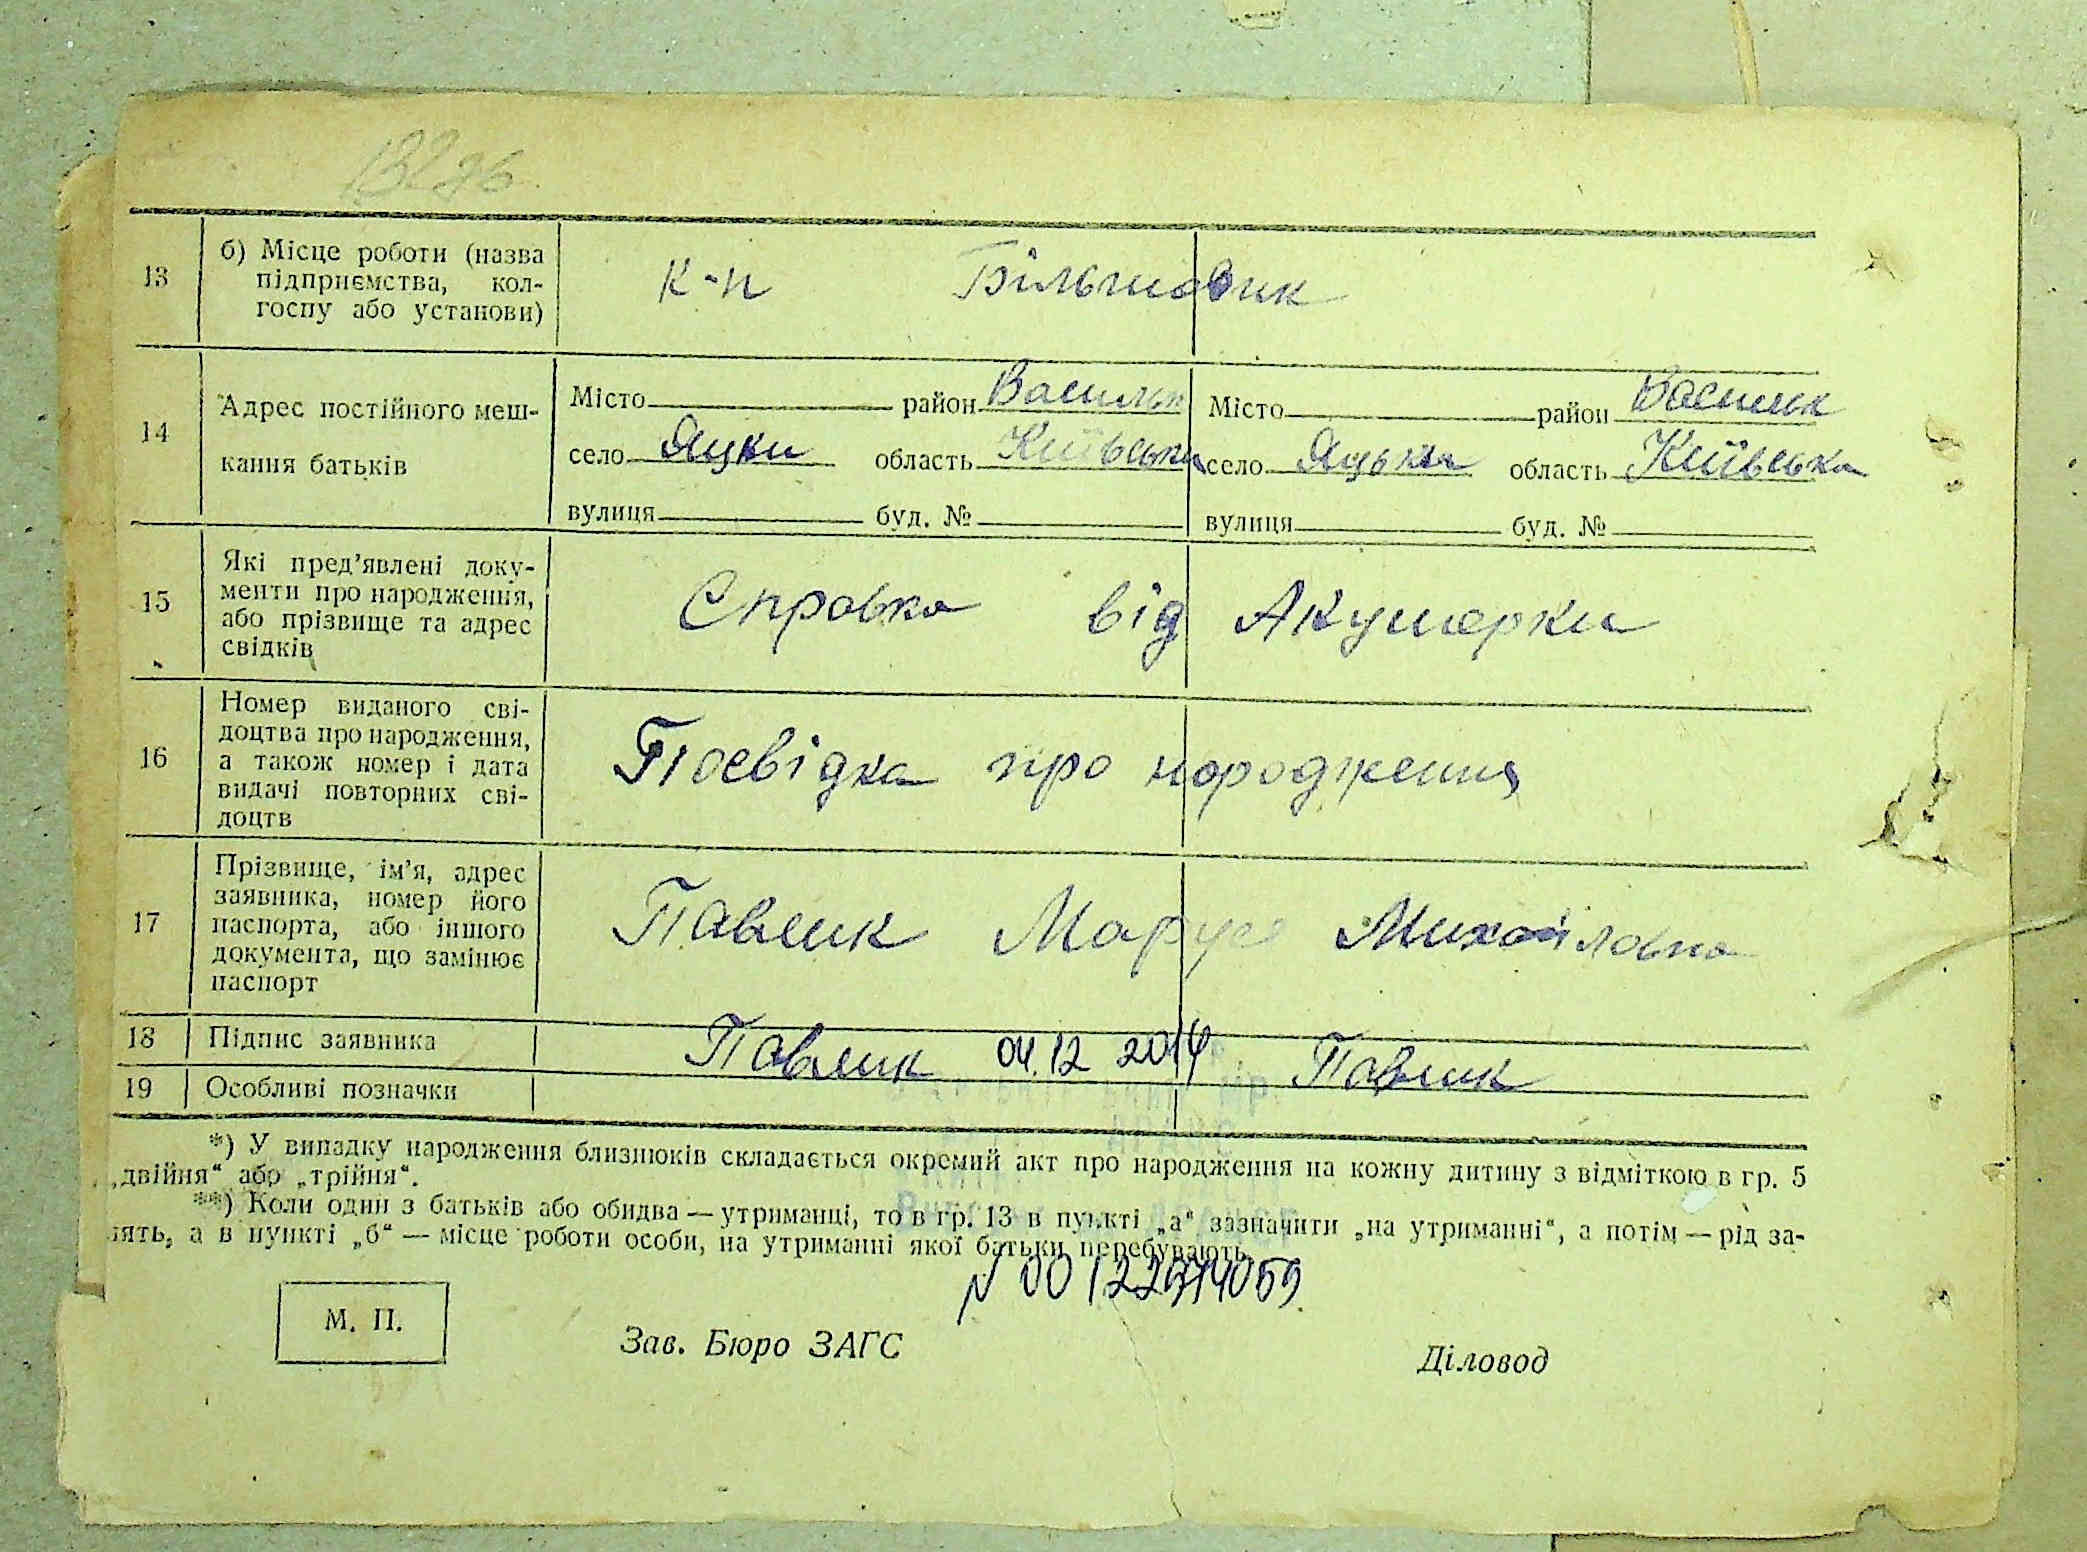 13 б) Місце роботи (назва
підприємства, кол-
госпу або установи)
к-п Більшовик
14 Адрес постійного меш-
кання батьків
Місто район Васильк Місто район Васильк
село Яцки область Київська село Яцьки область Київська
вулиця буд. № вулиця буд. №
15 Які пред’явлені доку-
менти про народження,
або прізвище та адрес
свідків
Справка від Акушерки
16 Номер виданого сві-
доцтва про народження,
а також номер і дата
видачі повторних сві-
доцтв
Посвідка про народження
17 Прізвище, ім’я, адрес
заявника, номер його
паспорта, або іншого
документа, що замінює
паспорт
Павлик Маруся Михайловна
18 Підпис заявника Павлик 04.12 2014 Павлик
19 Особливі позначки
*) У випадку народження близнюків складається окремий акт про народження на кожну дитину з відміткою в гр. 5
„двійня“ або „трійня“.
**) Коли один з батьків або обидва — утриманці, то в гр. 13 в пункті „а“ зазначити „на утриманні“, а потім — рід за-
нять, а в пункті „б“ — місце роботи особи, на утриманні якої батьки перебувають.
N 00122974059
М. П.
Зав. Бюро ЗАГС Діловод